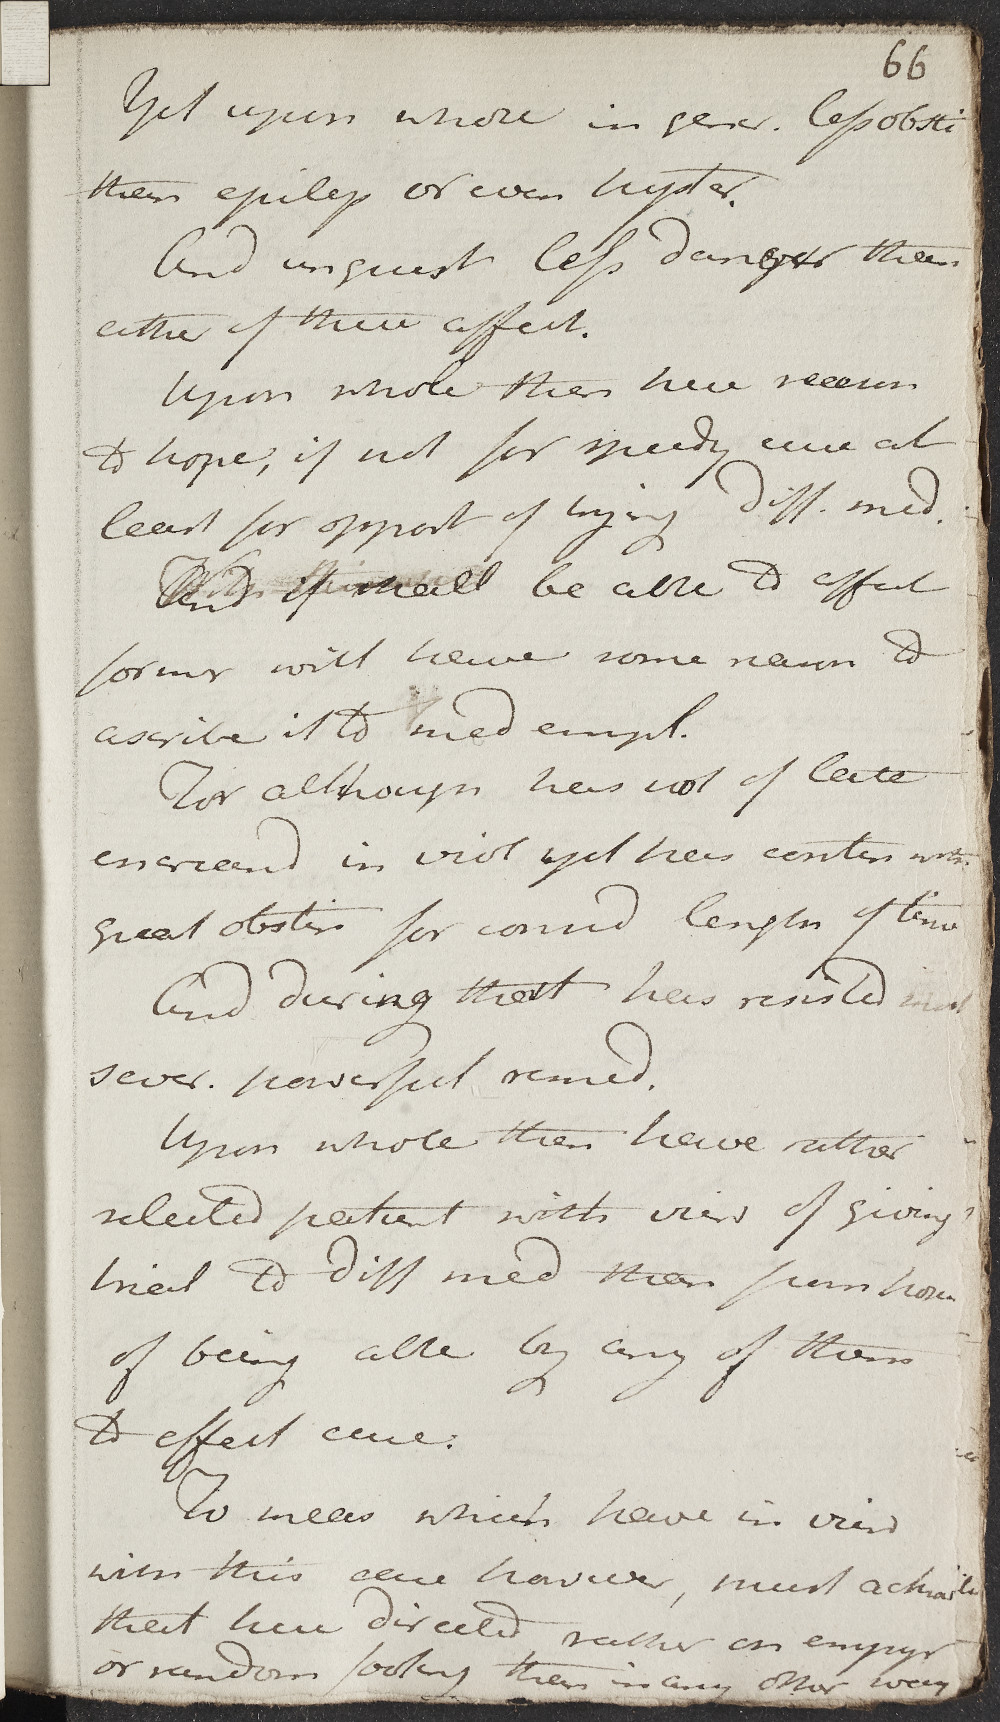 66
Yet upon whole in gener. less obsti
then epilep or even hyster.
And unquest less danger then
eithe of these affect.
Upon whole then have reason
to hope, if not for speedy cure at
least for opport of trying diff. med.
And if shall be able to effect
former will have some reason to
ascribe it to med empl.
For although has not of late
increasd in viol yet has contin with
great obstin for consid length of time
And during that has resisted
sever. powerful remed.
Upon whole then have rather
selected patient with view of giving
trial to diff med then from hope
of being able by any of them
to effect cure.
To meas which have in view
with this case however, must acknowle
that have directed rather on empyr
or random footing then in any other way